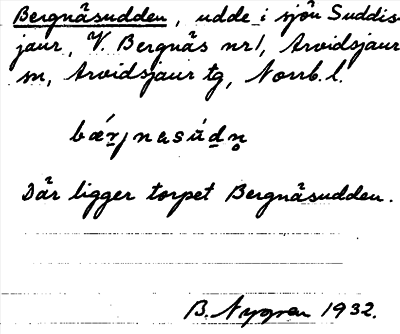 Bergnäsudden, udde i sjön Suddis-
jaur, V. Bergnäs nr 1, Arvidsjaur
sn, Arvidsjaur tg, Norrb. l.
bǽr̲ɟnasúd̲n̥
Där ligger torpet Bergnäsudden.
B. Nygren 1932.